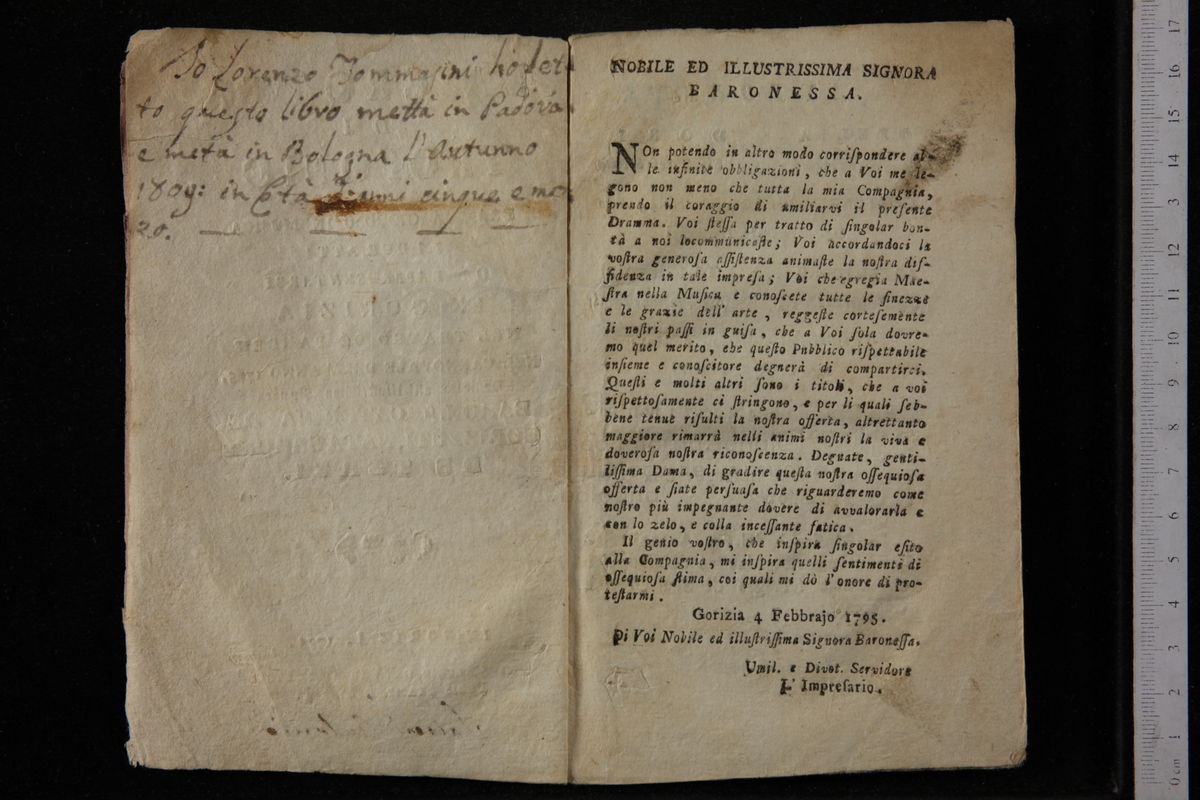 Io Lorenzo Tommasini ho let-
to questo libro mettà in Padova
e metà in Bologna l'Autunno
1809: in Età d'anni cinque e me-
zo.
NOBILE ED ILLUSTRISSIMA SIGNORA
BARONESSA.
NOn potendo in altro modo corriſpondere al-
le infinite obbligazioni, che a Voi me le-
gono non meno che tutta la mia Compagnia,
prendo il coraggio di umiliarvi il preſente
Dramma. Voi ſteſſa per tratto di ſingolar bon-
tà a noi locommunicaſte; Voi accordandoci la
voſtra generoſa aſſiſtenza animaſte la noſtra diſ-
fidenza in tale impreſa; Voi che egregia Mae-
ſtra nella Muſica e conoſcete tutte le finezze
e le grazie dell' arte, reggeſte corteſemente
li noſtri paſſi in guiſa, che a Voi ſola dovre-
mo quel merito, che queſto Pubblico riſpettabile
inſieme e conoſcitore degnerà di compartirci.
Queſti e molti altri ſono i titoli, che a voi
riſpettoſamente ci ſtringono, e per li quali ſeb-
bene tenue riſulti la noſtra offerta, altrettanto
maggiore rimarrà nelli animi noſtri la viva e
doveroſa noſtra riconoſcenza. Degnate, genti-
liſſima Dama, di gradire queſta noſtra oſſequioſa
offerta e ſiate perſuaſa che riguarderemo come
noſtro più impegnante dovere di avvalorarla e
con lo zelo, e colla inceſſante fatica.
Il genio voſtro, che inſpira ſingolar eſito
alla Compagnia, mi inſpira quelli ſentimenti di
oſſequioſa ſtima, coi quali mi dò l'onore di pro-
teſtarmi.
Gorizia 4 Febbrajo 1795.
Di Voi Nobile ed illuſtriſſima Signora Baroneſſa.
Umil. e Divot. Servidore
L' Impreſario.
17
16
15
14
13
12
11
10
9
8
7
6
5
4
3
2
1
0 cm